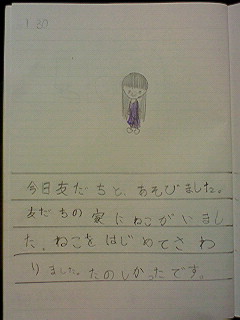 1.30
今日友だちと、あそびました。
友だちの家にねこがいまし
た。ねこをはじめてさわ
りました。たのしかったです。